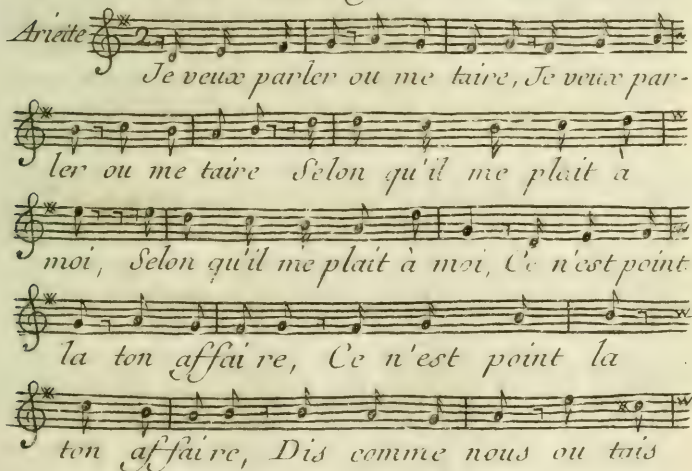 Ariette
2
Je veux parler ou me taire, Je veux par-
ler ou me taire Selon qu'il me plait a
moi, Selon qu'il me plait à moi, Ce n'est point
la ton affaire, Ce n'est point la
ton affaire, Dis comme nous ou tais